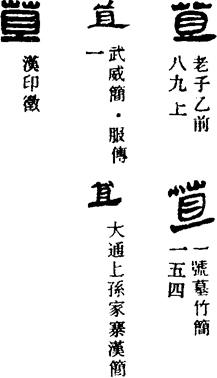 苴
老子乙前
八九上
苴
一號墓竹簡
一五四
苴
武威簡·服傳
一
苴
大通上孫家寨漢簡
苴
漢印徵